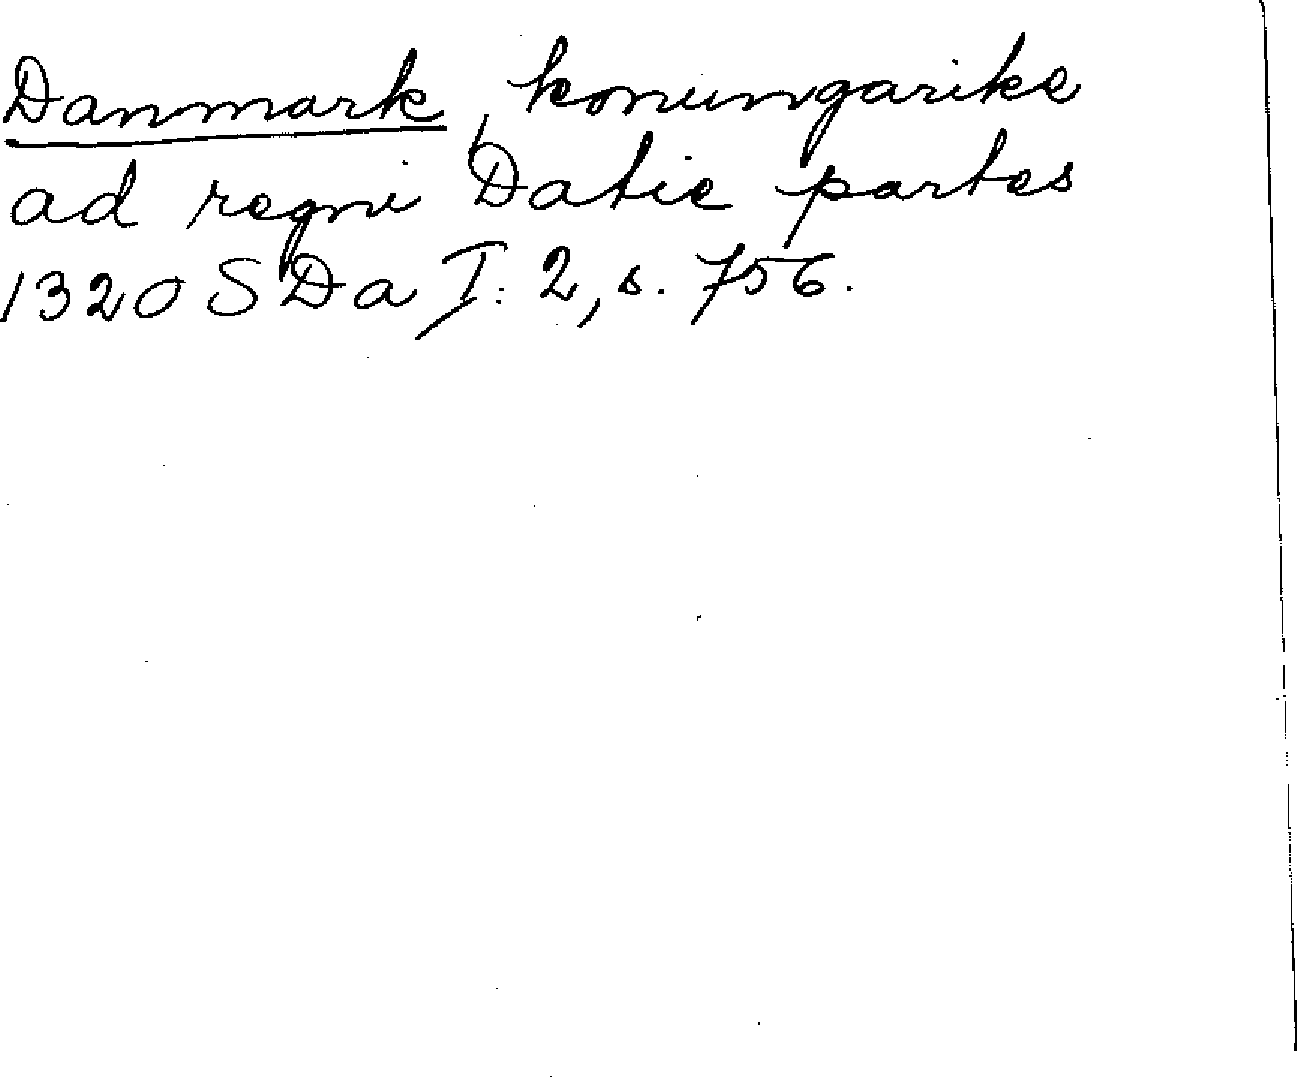 Danmark, konungarike
ad regni Datie partes
1320 SDa I: 2, s. 756.